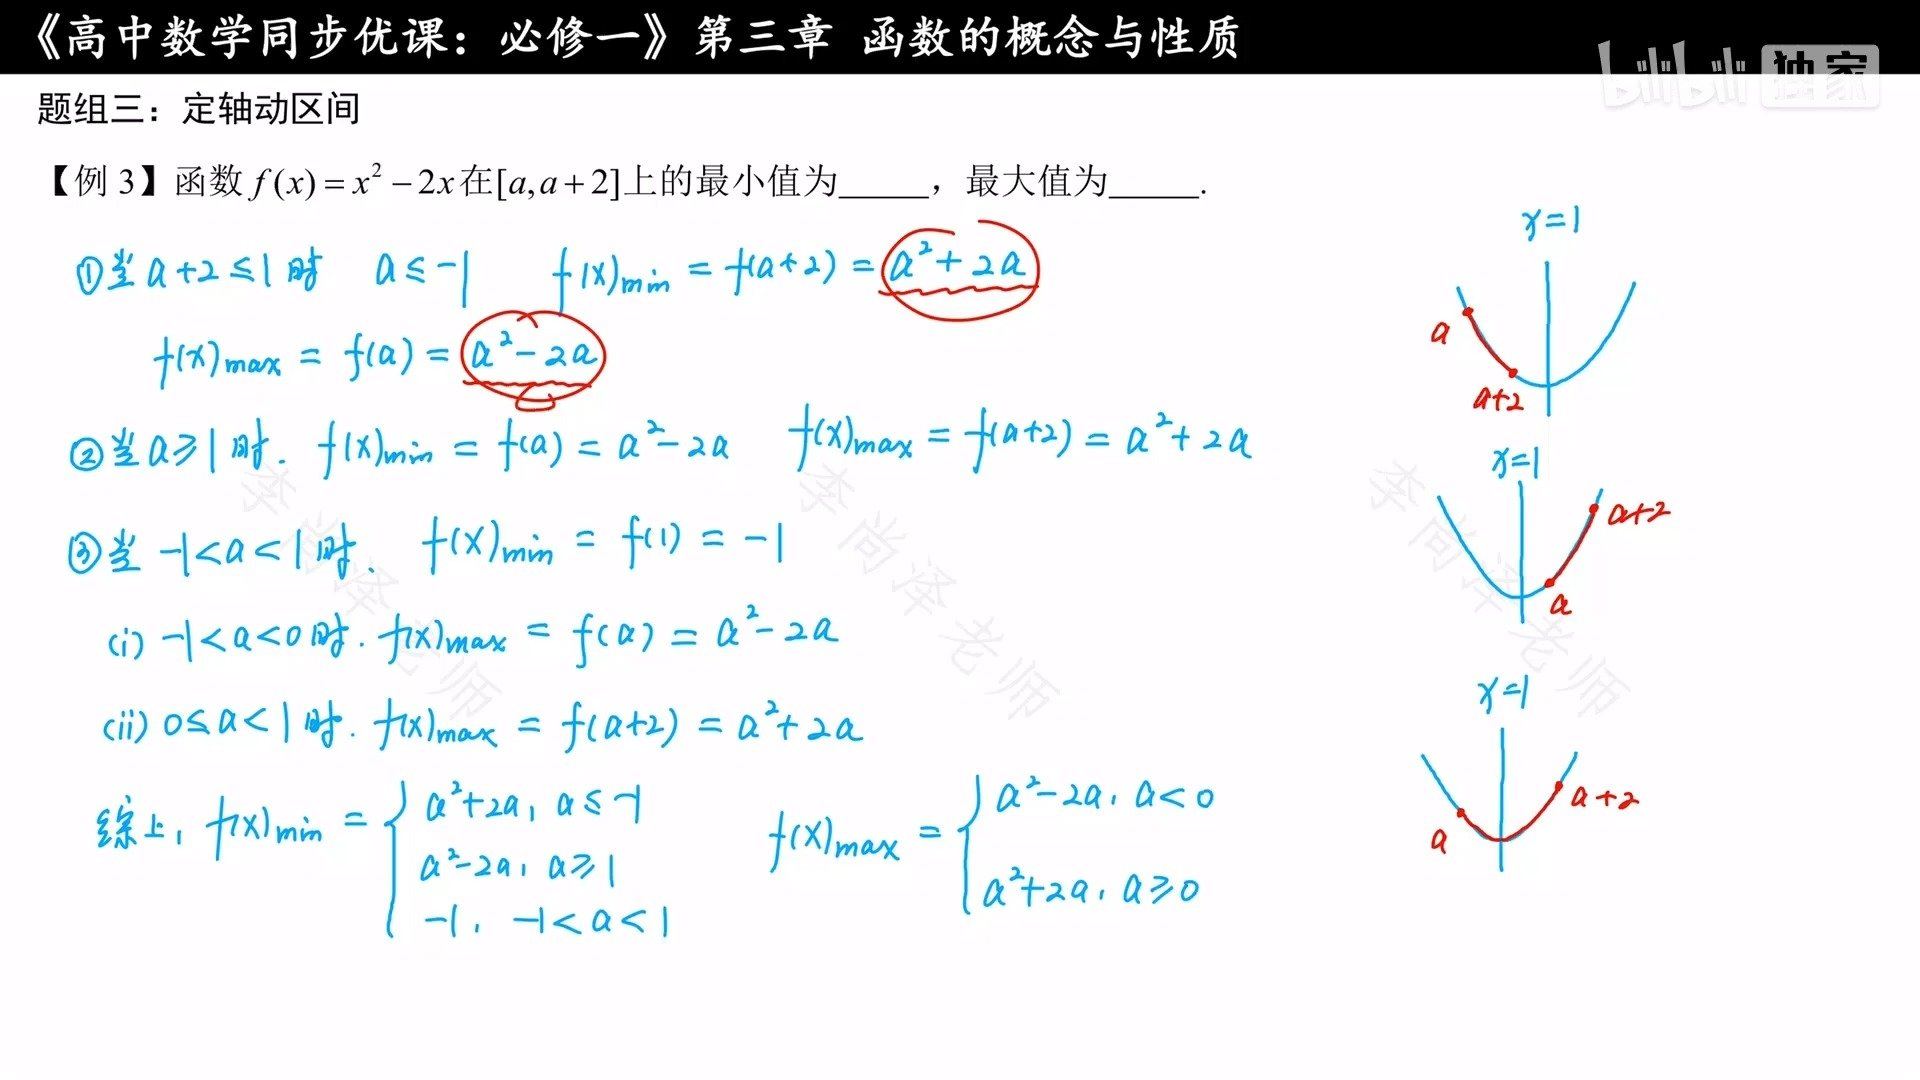 《高中数学同步优课：必修一》第三章 函数的概念与性质
bilibili 独家
题组三：定轴动区间
【例 3】函数 f(x)=x²−2x在[a,a+2]上的最小值为_____，最大值为_____.
①当 a+2≤1时 a≤-1 f(x)min = f(a+2) = a²+2a
f(x)max = f(a) = a²-2a
②当a≥1时. f(x)min = f(a) = a²-2a f(x)max = f(a+2) = a²+2a
③当 -1<a<1时. f(x)min = f(1) = -1
(i) -1<a<0时. f(x)max = f(a) = a²-2a
(ii) 0≤a<1时. f(x)max = f(a+2) = a²+2a
综上, f(x)min = { a²+2a, a≤-1
a²-2a, a≥1
-1, -1<a<1
f(x)max = { a²-2a, a<0
a²+2a, a≥0
x=1
a
a+2
x=1
a+2
a
x=1
a+2
a
李尚泽老师
李尚泽老师
李尚泽老师